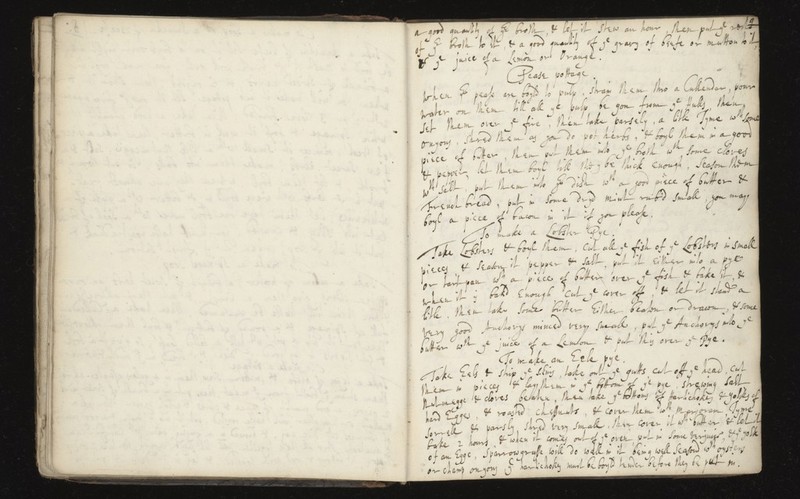 19
a good quantity of ye broth, & let it stew an hour then put ye rest
of ye broth to it, & a good quantity of ye gravy of beefe or mutton to it,
& ye juice of a Lemon or Orange.
Pease pottage
When ye pease are boyl'd to pulp, strain them thro a Cullendar, pour
water on them till all ye pulp be gon from ye Hulls, then
set them over ye fire, then take parsely, a litle Tyme wth some
onyons, shred them as you do pot herbs, & boyl them in a good
piece of butter, then put them into ye broth wth some cloves
& pepper, let them boyl till they be thick enough, season them
wth salt, put them into ye dish wth a good piece of butter &
French bread, put in some dry'd mint rub'd small, you may
boyl a piece of bacon in it if you please.
To make a Lobster Pye.
Take Lobsters & boyl them, cut all ye fish of ye Lobsters in small
pieces & season it pepper & salt, put it either into a pye
or tart pan wth a piece of butter over ye fish & bake it, &
when it is bak'd enough cut ye cover off & let it stand a
litle, then take some butter either beaten or drawn, & some
very good Anchovys minced very small, put ye Anchovys into ye
butter wth ye juice of a Lemon & put this over ye Pye.
To make an Eele pye.
Take Eels & strip ye skins, take out ye guts cut off ye head, cut
them in pieces & lay them in ye bottom of ye pye, strewing salt
Nutmegge & cloves beaten, then take ye bottoms of hartichokes, & yolks of
hard Egges, & roasted Chestnuts, & cover them wth Marjoram Tyme
Sorrell & parsly, shred very small, then cover it wth butter, & let it
bake 2 hours, & when it comes out of ye oven put in some verjuyce, & ye yolk
of an Egge, Sparrowgrass will do well in it being well seasond wth oysters
or onyons ye hartichokes must be boyld tender before they be put in.